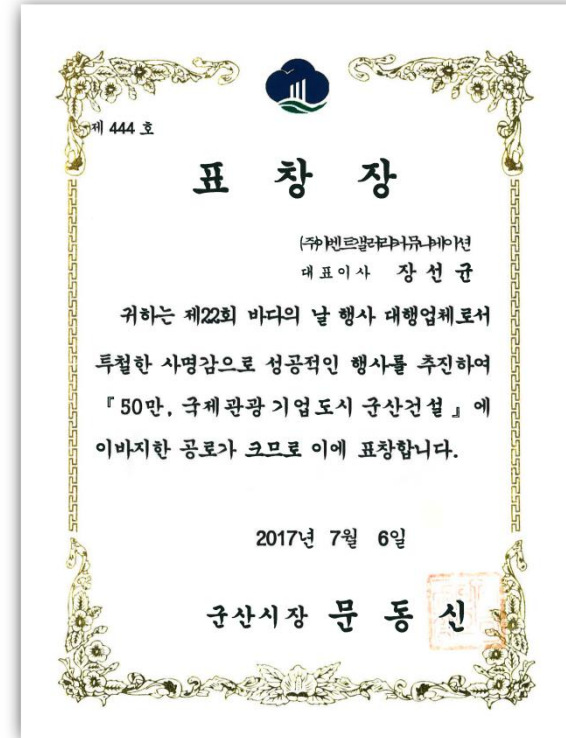 제 444 호
표 창 장
(주)이벤트갤러리커뮤니케이션
대표이사 장 선 균
귀하는 제22회 바다의 날 행사 대행업체로서
투철한 사명감으로 성공적인 행사를 추진하여
『50만, 국제관광 기업도시 군산건설 』에
이바지한 공로가 크므로 이에 표창합니다.
2017년 7월 6일
군산시장 문 동 신